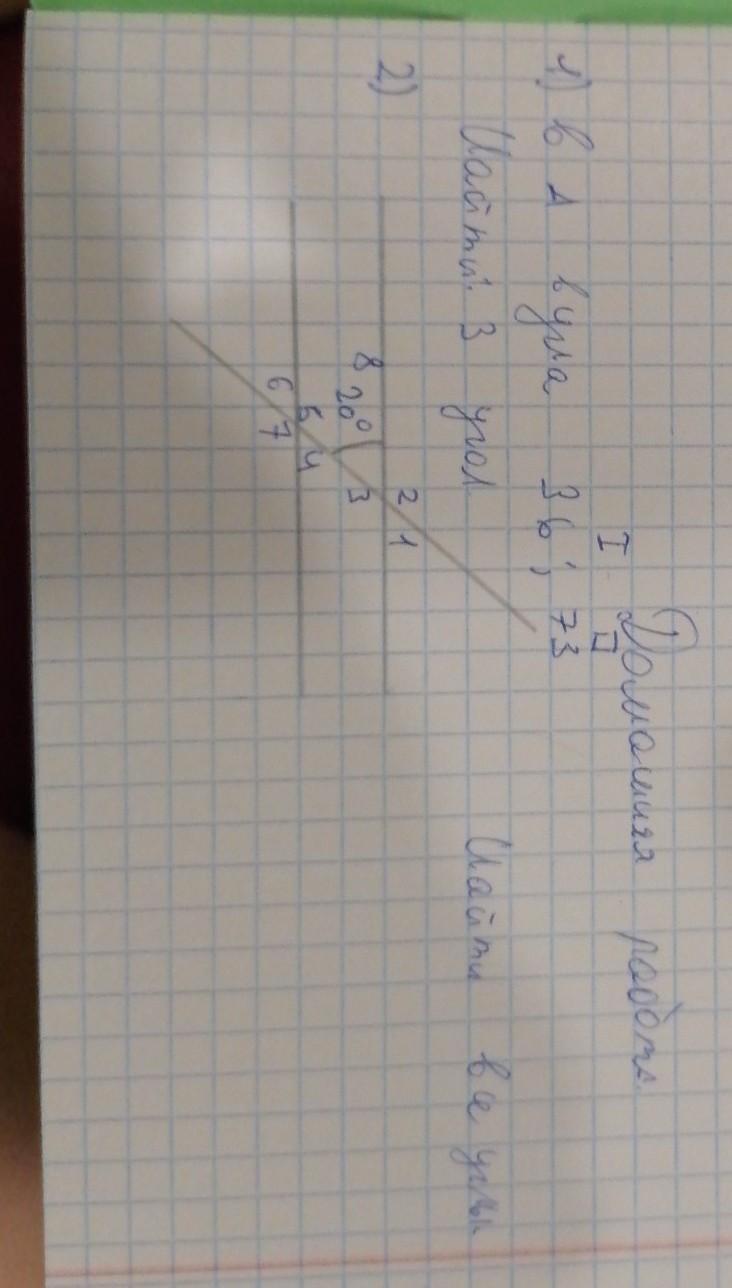 Домашняя работа.
I II
1) В Δ угла 36; 73
Найти: 3 угол
Найти все углы
2)
2 1
8 20° 3
5 4
6 7